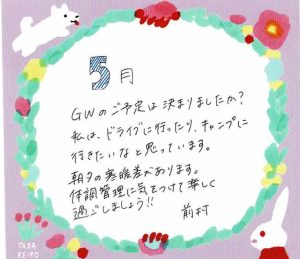 5月
GWのご予定は決まりましたか?
私は、ドライブに行ったり、キャンプに
行きたいなと思っています。
朝夕の寒暖差があります。
体調管理に気をつけて楽しく
過ごしましょう!!
前村
TADA
KEIKO